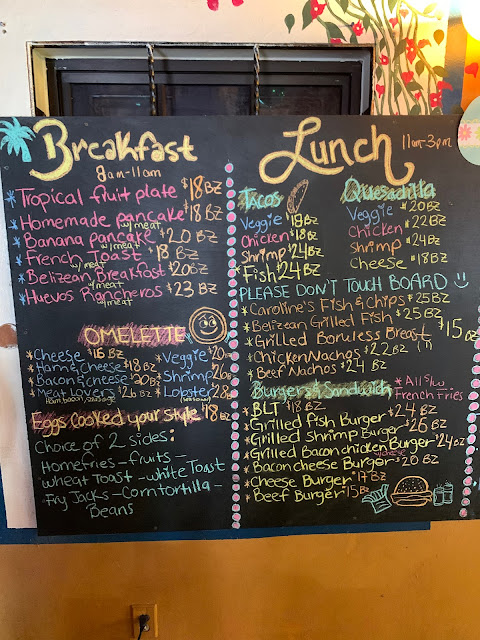 Breakfast
8am-11am
*Tropical fruit plate $18 BZ
*Homemade pancake $18 BZ
w/meat
*Banana pancake $20 BZ
w/meat
*French Toast $18 BZ
w/meat
*Belizean Breakfast $20BZ
w/meat
*Huevos Rancheros $23 BZ
OMELETTE
*Cheese $16 BZ
*Ham & cheese $18 BZ
*Bacon & cheese $20 BZ
*Meat Lovers $26 BZ
*Veggie $20
*Shrimp $26
*Lobster $28
Eggs Cooked your Style $18 BZ
Choice of 2 sides:
Homefries - fruits -
wheat Toast - white Toast
Fry Jacks - Corn tortilla -
Beans
Lunch 11am-3pm
Tacos
Veggie $18 BZ
Chicken $18 BZ
Shrimp $24 BZ
*Fish $24 BZ
Quesadilla
Veggie $20 BZ
Chicken $22 BZ
Shrimp $24 BZ
Cheese $18 BZ
PLEASE DON'T TOUCH BOARD
*Caroline's Fish & Chips $25 BZ
*Belizean Grilled Fish $25 BZ
*Grilled Bonless Breast $15 BZ
*Chicken Nachos $22 BZ
*Beef Nachos $24 BZ
Burgers & Sandwich
*All S/w
French Fries
*BLT $18 BZ
*Grilled fish Burger $24 BZ
*Grilled Shrimp Burger $26 BZ
*Grilled Bacon chicken Burger $24 BZ
w/cheese
*Bacon cheese Burger $20 BZ
Cheese Burger $17 BZ
*Beef Burger $15 BZ